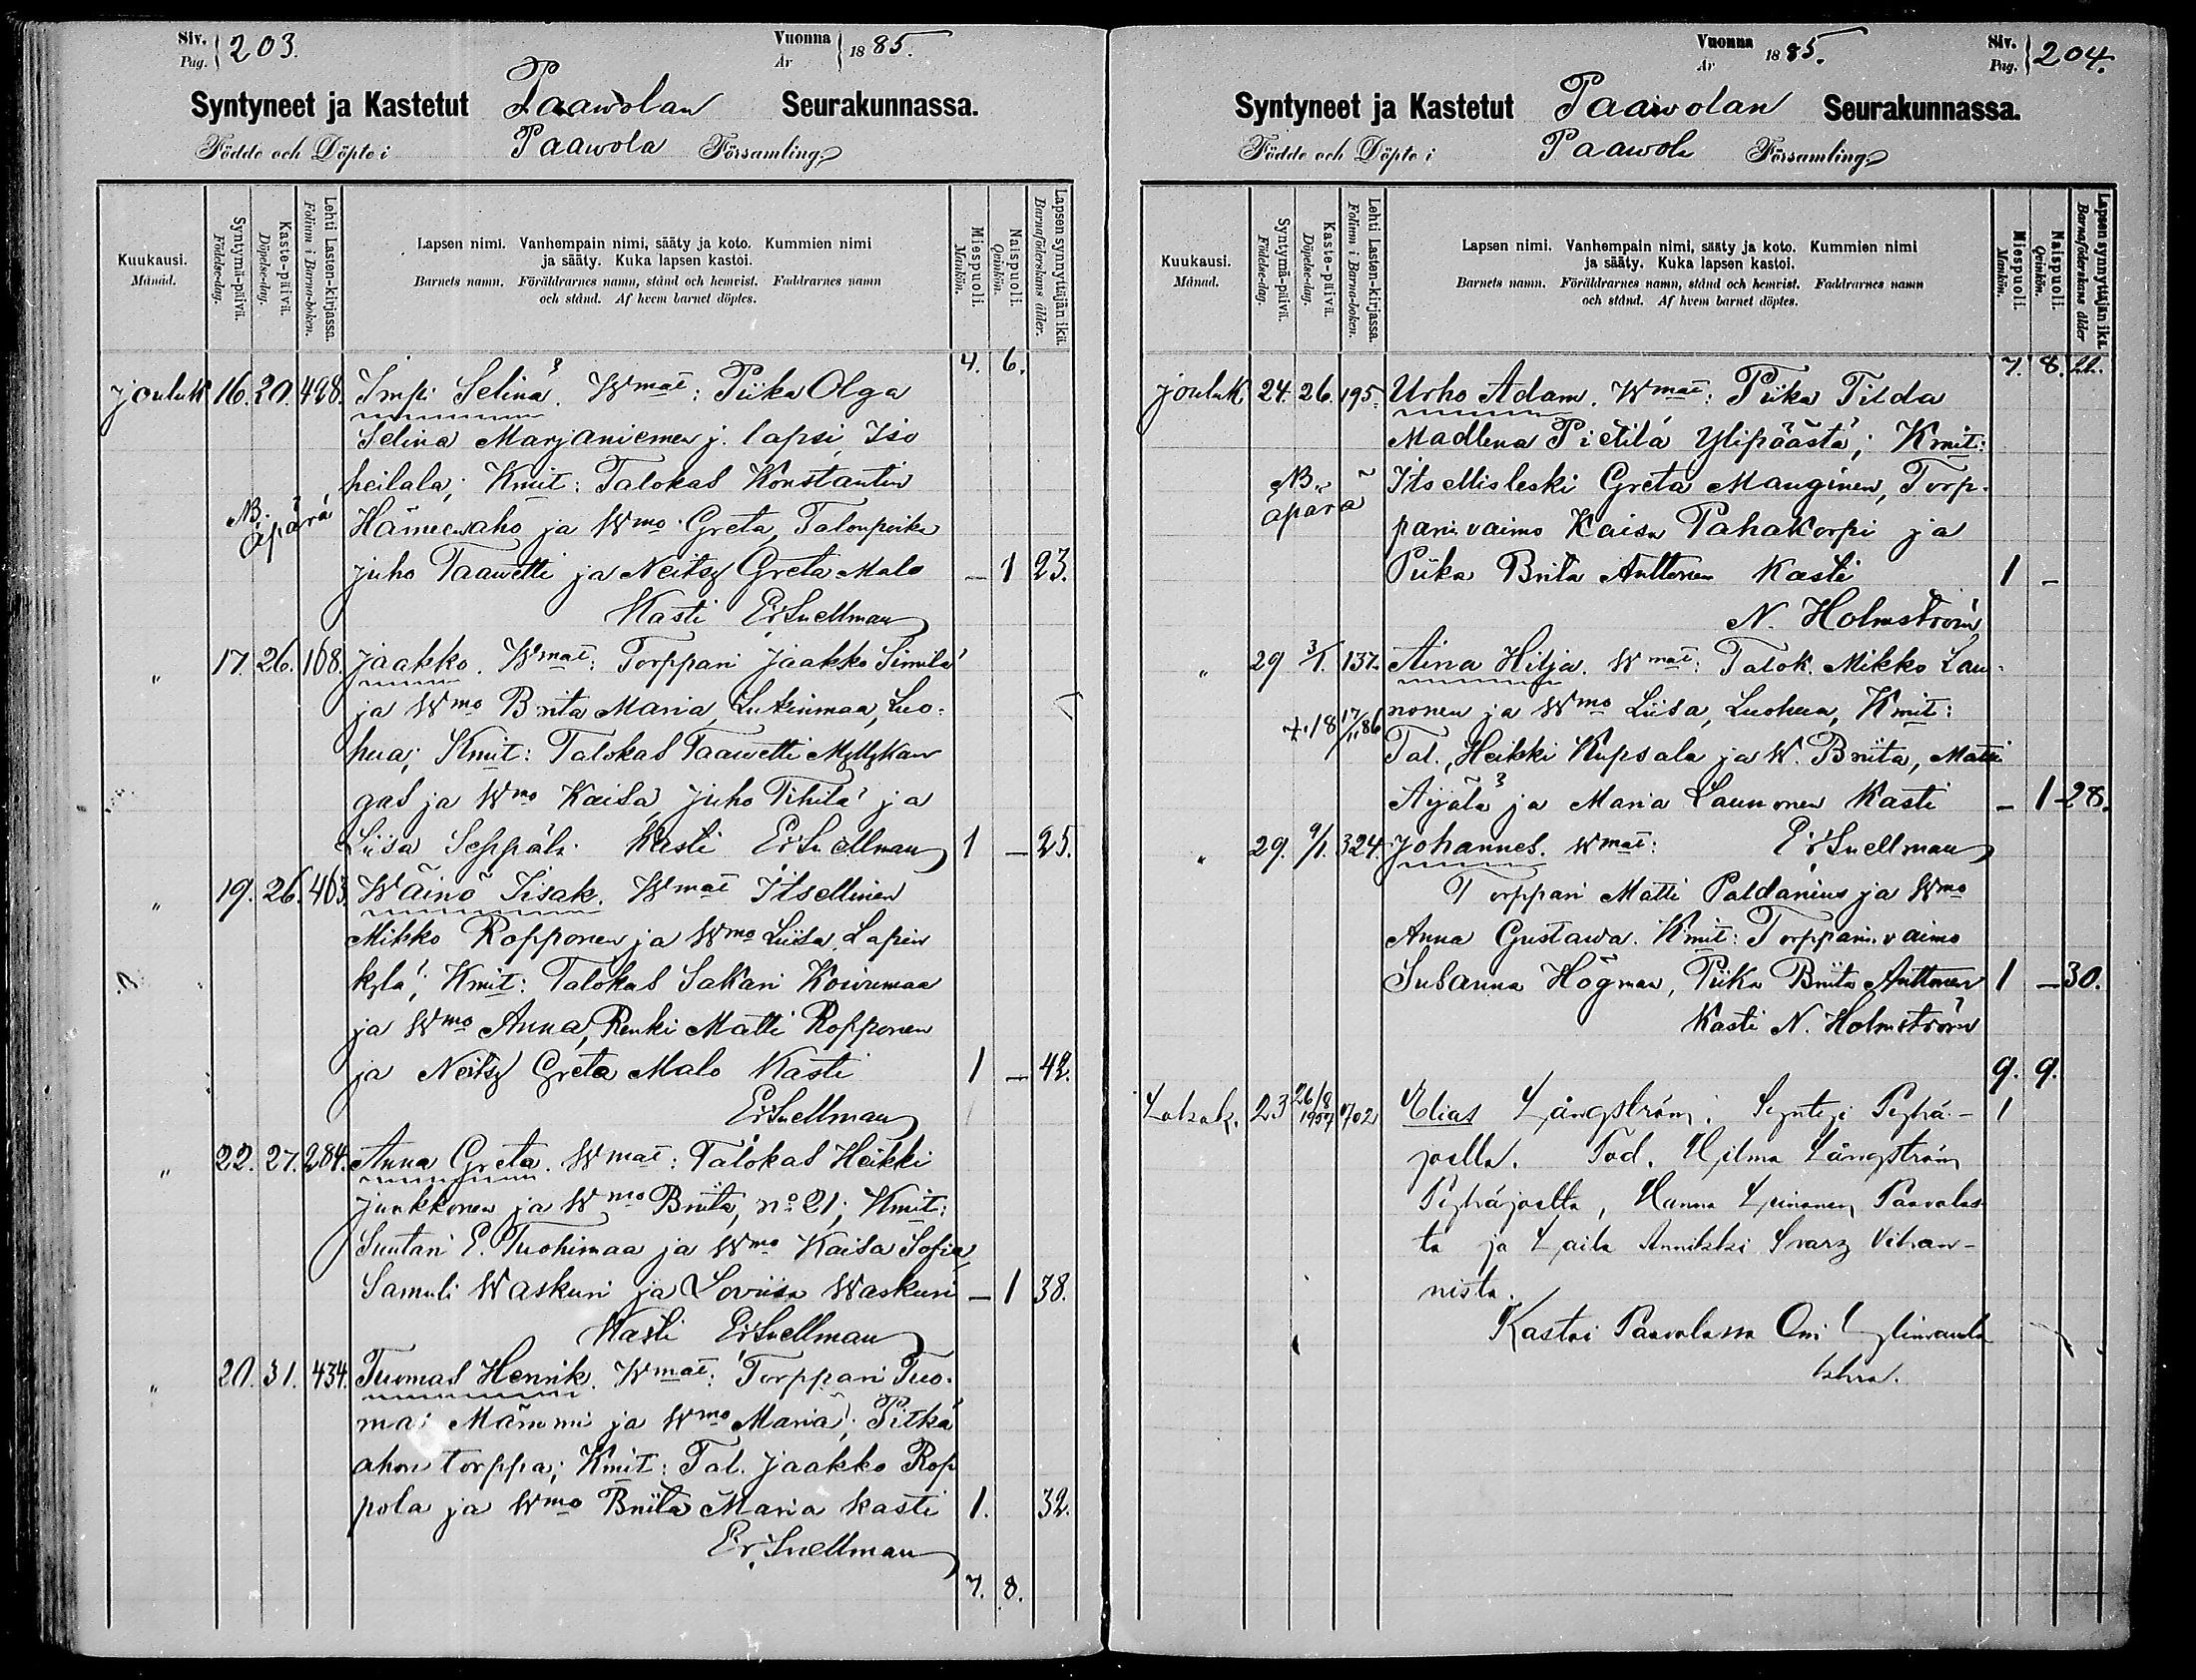 Siv.
Pag. 203.
Vuonna
År 1885.
Syntyneet ja Kastetut Paawolan Seurakunnassa.
Födde och Döpte i Paawola Församling
Kuukausi.
Månad.
Syntymä-päivä.
Födelse-dag.
Kaste-päivä.
Döpelse-dag.
Lehti Lasten-kirjassa.
Folium i Barna-boken.
Lapsen nimi. Vanhempain nimi, sääty ja koto. Kummien nimi
ja sääty. Kuka lapsen kastoi.
Barnets namn. Föräldrarnes namn, stånd och hemvist. Faddrarnes namn
och stånd. Af hvem barnet döptes.
Miespuoli.
Mankön.
Naispuoli.
Qvinkön.
Lapsen synnyttäjän ikä.
Barnaföderskans ålder.
4. 6.
jouluk 16. 20. 498. Impi Selina. Wmat: Piika Olga
Selina Marjaniemen j. lapsi, Iso
heilala; Kmit: Talokas Konstantin
NB. äpärä Hämeenaho ja Wmo Greta, Talonpoika
Juho Taawetti ja Neitsy Greta Malo — 1 23.
Kasti Er Snellman
" 17. 26. 168. Jaakko. Wmat: Torppari Jaakko Similä
ja Wmo Brita Maria, Lukinmaa, Luo-
hua; Kmit: Talokas Taawetti Myllykan
gas ja Wmo Kaisa, Juho Tihilä ja
Liisa Seppälä. Kasti Er Snellman 1 — 25.
" 19. 26. 463. Wäinö Iisak. Wmat Itsellinen
Mikko Ropponen ja Wmo Liisa, Lapin
kylä; Kmit: Talokas Sakari Kowumaa
ja Wmo Anna, Renki Matti Ropponen
ja Neitsy Greta Malo Kasti 1 — 42.
Er Snellman
" 22. 27. 284. Anna Greta. Wmat: Talokas Heikki
Junkkonen ja Wmo Briita, no 21; Kmit:
Suutari E. Tuohimaa ja Wmo Kaisa Sofia,
Samuli Waskuri ja Loviisa Waskuri — 1 38.
Kasti Er Snellman
" 20. 31. 434. Tuomas Henrik. Wmat: Torppari Tuo-
mas Mämmi ja Wmo Maria, Pitkä
ahon torppa; Kmit: Tal. Jaakko Rop
pola ja Wmo Briita Maria kasti 1. 32.
Er. Snellman
7. 8.
Vuonna
År 1885.
Siv.
Pag. 204.
Syntyneet ja Kastetut Paawolan Seurakunnassa.
Födde och Döpte i Paawola Församling
Kuukausi.
Månad.
Syntymä-päivä.
Födelse-dag.
Kaste-päivä.
Döpelse-dag.
Lehti Lasten-kirjassa.
Folium i Barna-boken.
Lapsen nimi. Vanhempain nimi, sääty ja koto. Kummien nimi
ja sääty. Kuka lapsen kastoi.
Barnets namn. Föräldrarnes namn, stånd och hemvist. Faddrarnes namn
och stånd. Af hvem barnet döptes.
Miespuoli.
Mankön.
Naispuoli.
Qvinkön.
Lapsen synnyttäjän ikä.
Barnaföderskans ålder
7. 8. 22.
jouluk 24. 26. 195. Urho Adam. Wmat: Piika Tilda
Madlena Pietilä Ylipäästä; Kmit:
NB. äpärä Itsellisleski Greta Manginen, Torp-
parin vaimo Kaisa Pahakorpi ja
Piika Brita Anttonen Kasti 1 —
N. Holmström
" 29 3/1. 137. Aina Hilja. Wmat: Talok. Mikko Lau-
+. 18 17/11 86 nonen ja Wmo Liisa, Luohua, Kmit:
Tal. Heikki Kupsala ja W. Briita, Matti
Äijälä ja Maria Launonen Kasti — 1 28.
" 29. 9/1. 324. Johannes. Wmat: Er Snellman
Torppari Matti Paldanius ja Wmo
Anna Gustawa. Kmit: Torpparin vaimo
Susanna Högman, Piika Briita Anttonen 1 — 30.
Kasti N. Holmström
9. 9.
Lokak. 23 26/8 1957 702 Elias Långström. Syntyi Pyhä- 1
joella. Tod. Hilma Långström
Pyhäjoelta, Hanna Leinonen Paavolas-
ta ja Laila Annikki Svarz Vihan-
nista.
Kastoi Paavolassa